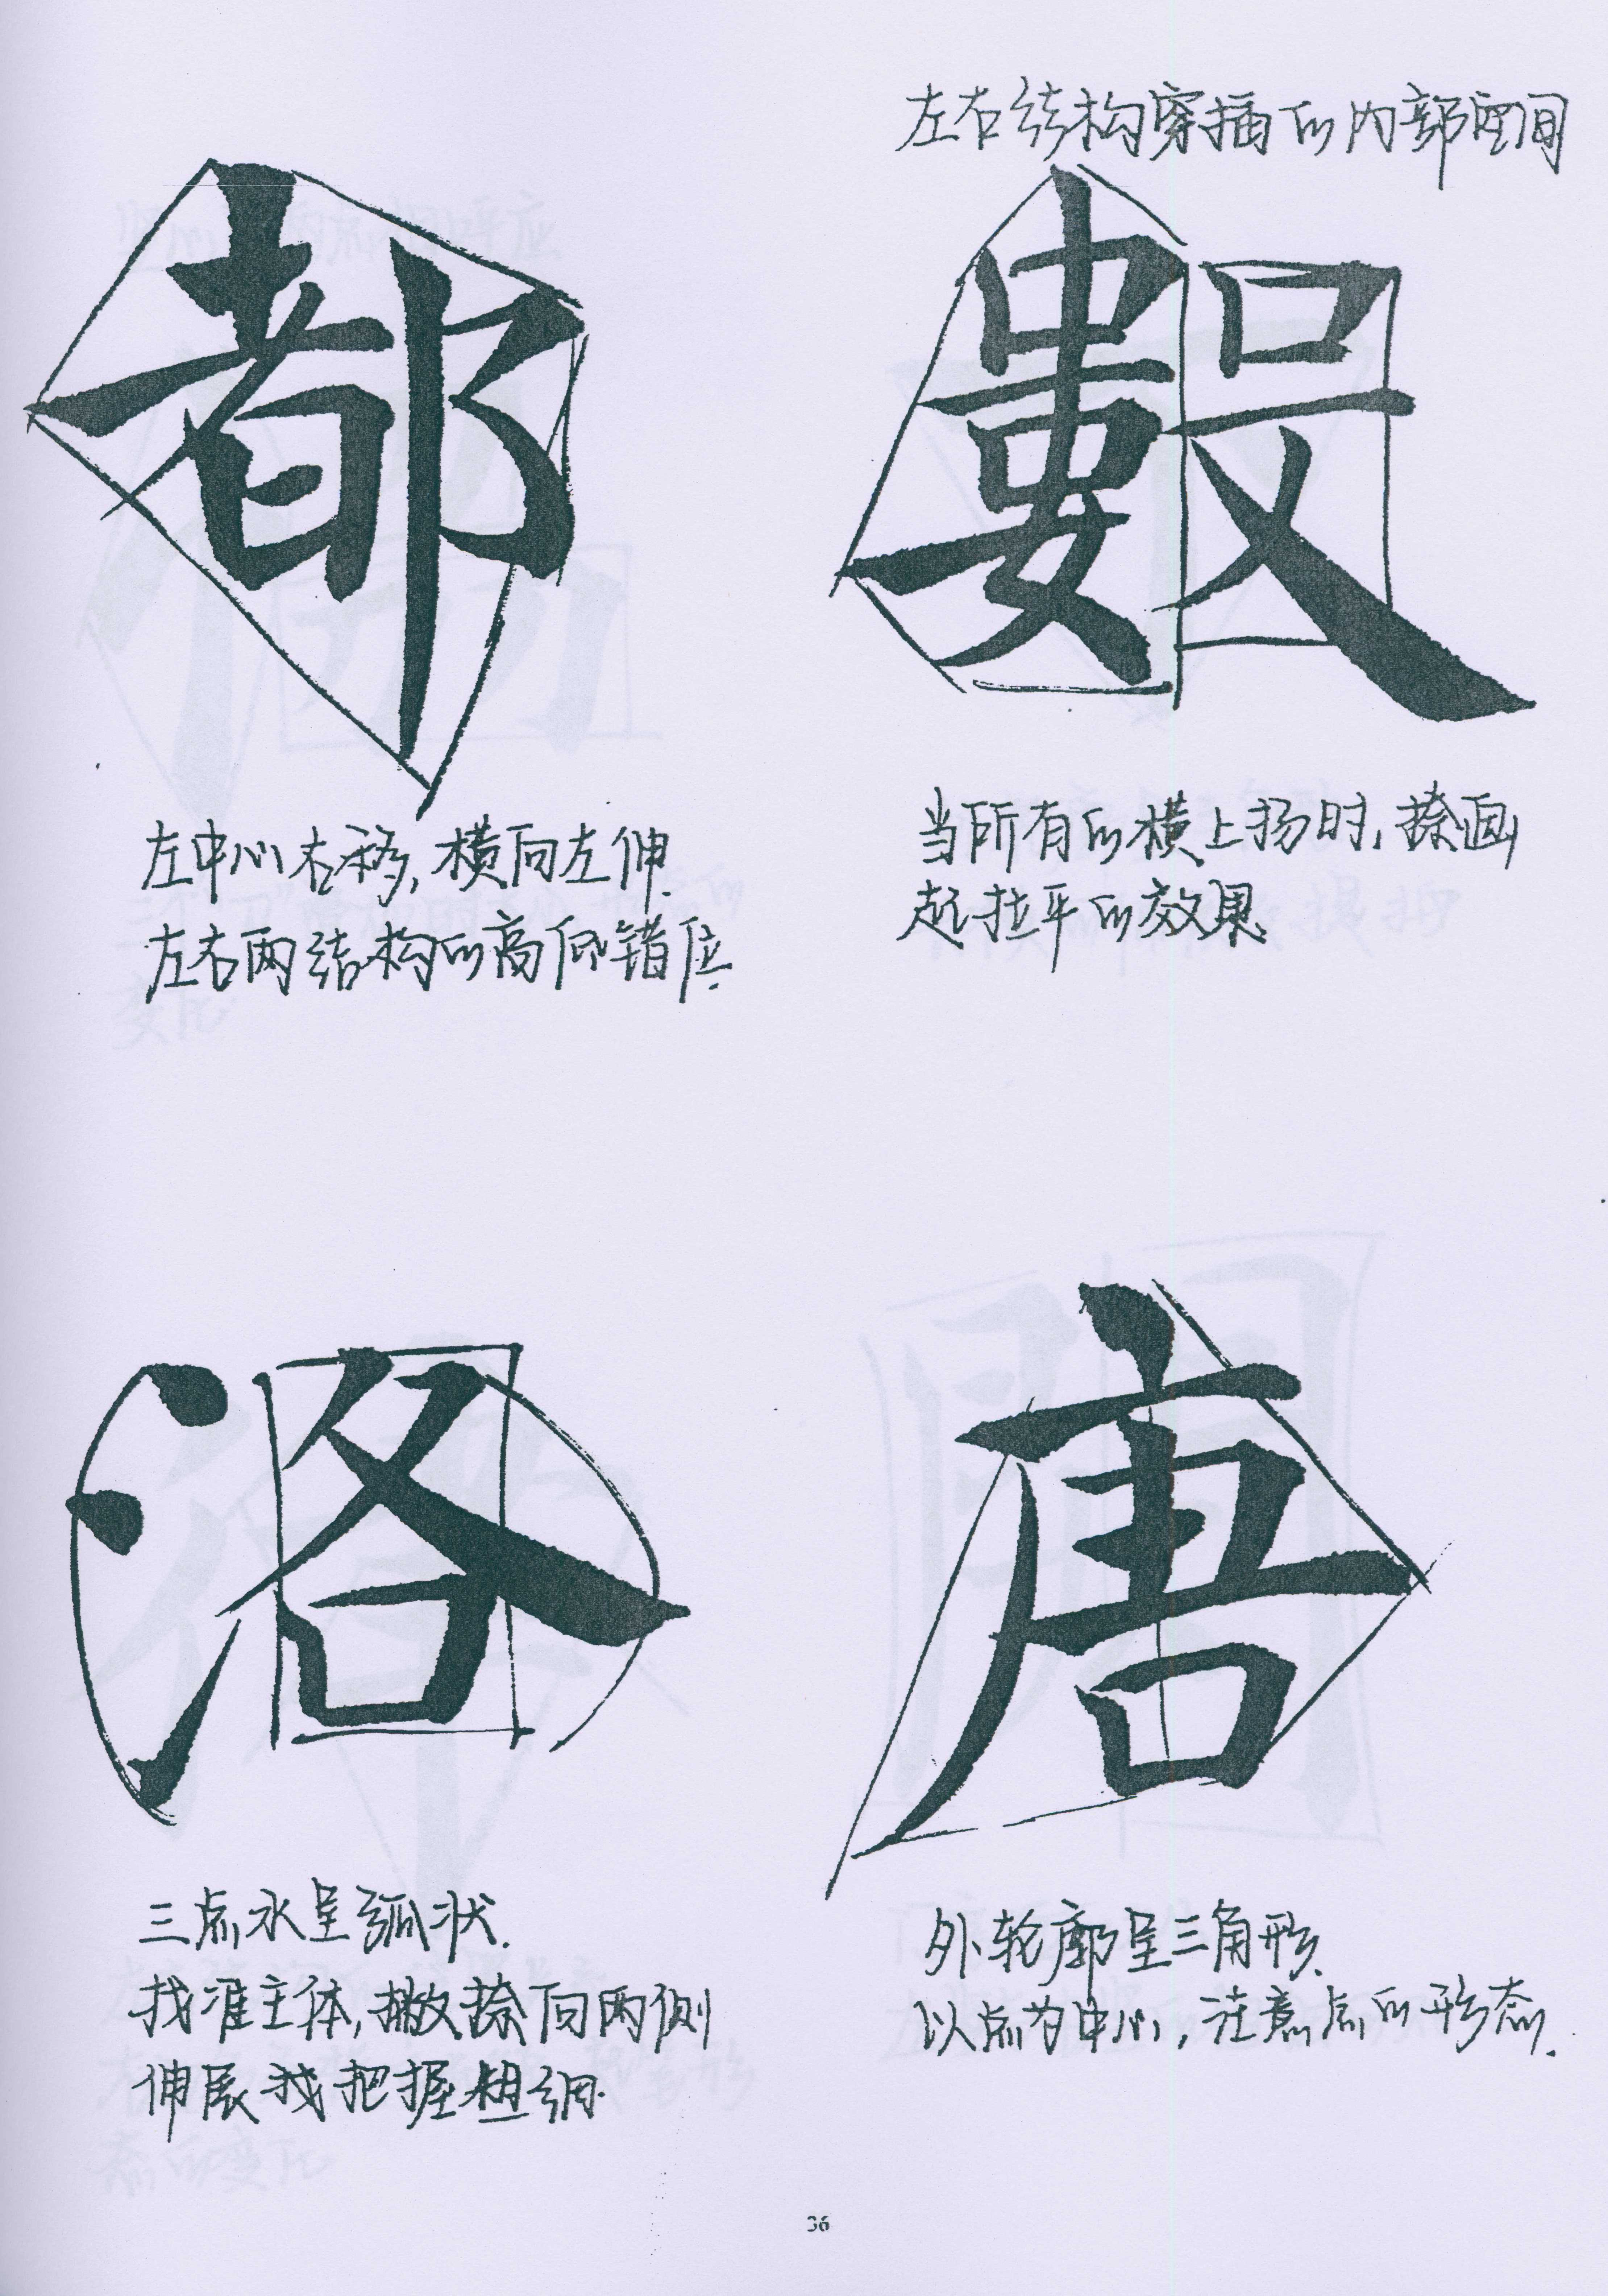 左右结构穿插的内部空间
都
數
左中心右移,横向左伸.
左右两结构的高低错位.
当所有的横上扬时,捺画
起拉平的效果.
洛
唐
三点水呈弧状.
找准主体,撇捺向两侧
伸展找把握粗细.
外轮廓呈三角形.
以点为中心,注意点的形态.
36